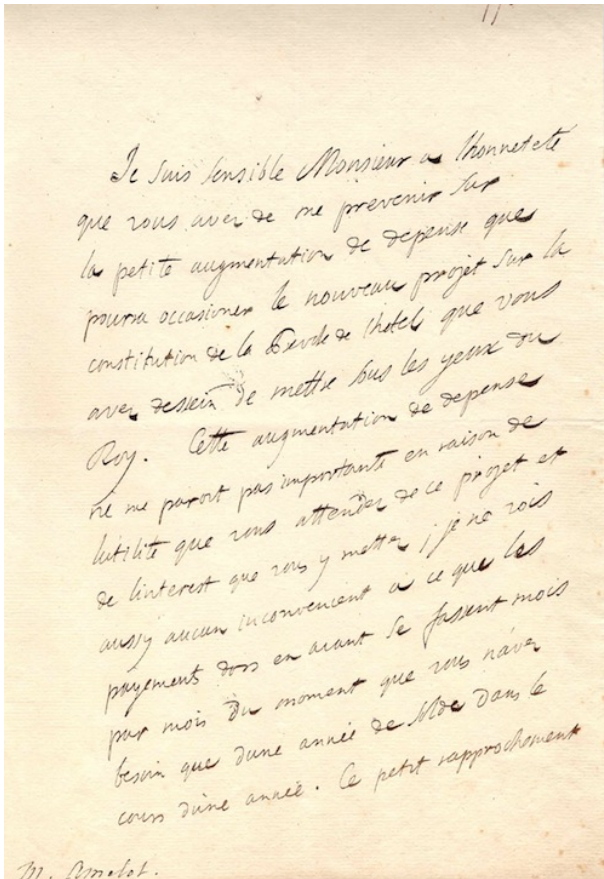 Je suis sensible Monsieur a lhonneteté
que vous avez de me prevenir sur
la petite augmentation de depense que
poura occasioner le nouveau projet sur la
constitution de la Prevoté de lhotel que vous
avez dessein de mettre sous les yeux du
Roy. Cette augmentation de depense
ne me paroit pas importante en raison de
lutilité que vous attendez de ce projet et
de linterest que vous y mettez, je ne vois
aussy aucun inconvenient a ce que les
payements dors en avant se fassent mois
par mois du moment que vous navez
besoin que dune année de solde dans le
cours dune année. Ce petit rapprochement
M. Amelot.